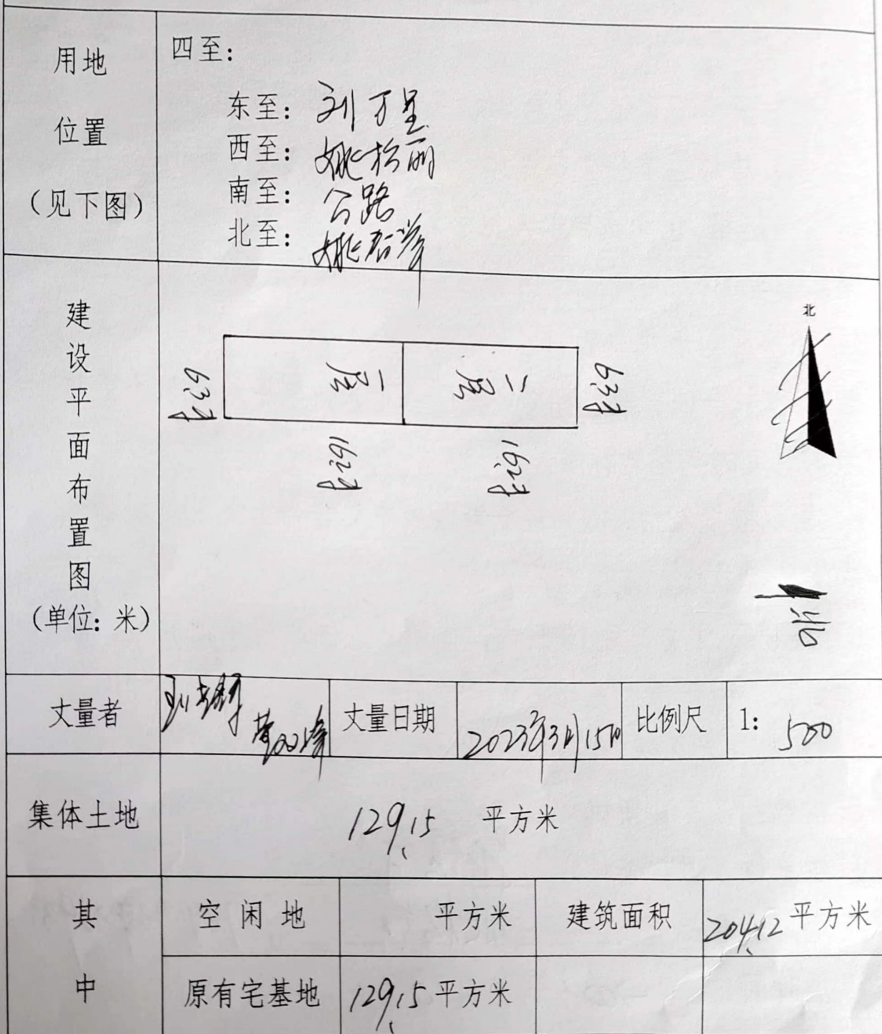 用地
位置
(见下图)
四至:
东至: 刘万里
西至: 姚松丽
南至: 公路
北至:
建设平面布置图
(单位: 米)
6.3米
一层
二层
6.3米
16.2米
16.2米
北
北
丈量者
丈量日期
2023年3月15日
比例尺
1: 500
集体土地
129.15 平方米
其中
空闲地
平方米
建筑面积
204.12 平方米
原有宅基地
129.15 平方米